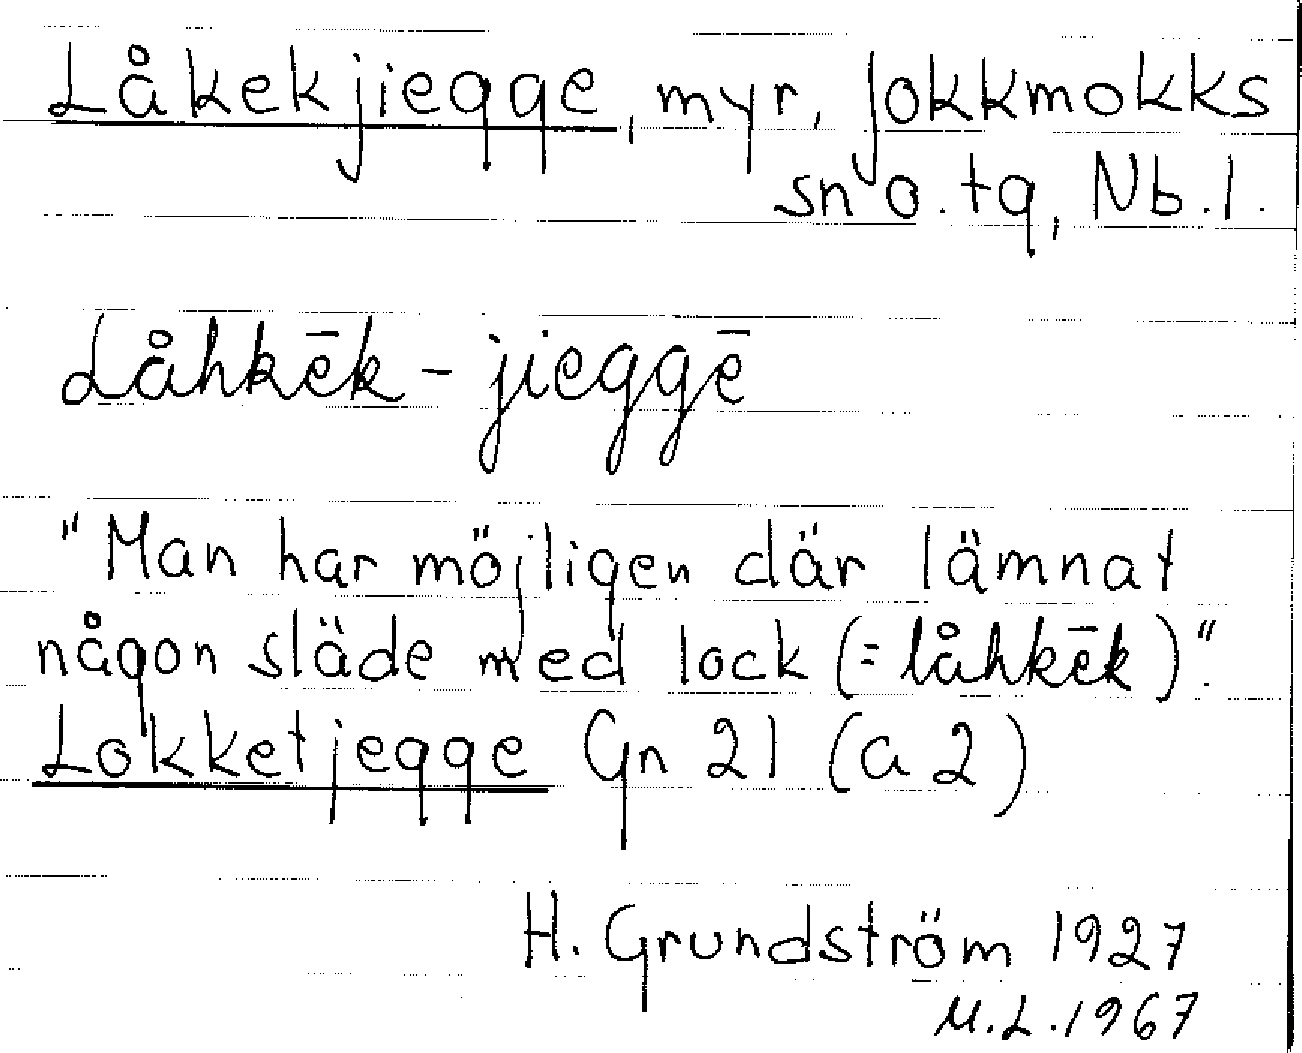 Låkekjiegge, myr, Jokkmokks
sn o. tg, Nb. l.
Låhkēk-jieggē
"Man har möjligen där lämnat
någon släde med lock (= låhkēk)".
Lokketjegge Gn 21 (a 2)
H. Grundström 1927
M.L. 1967